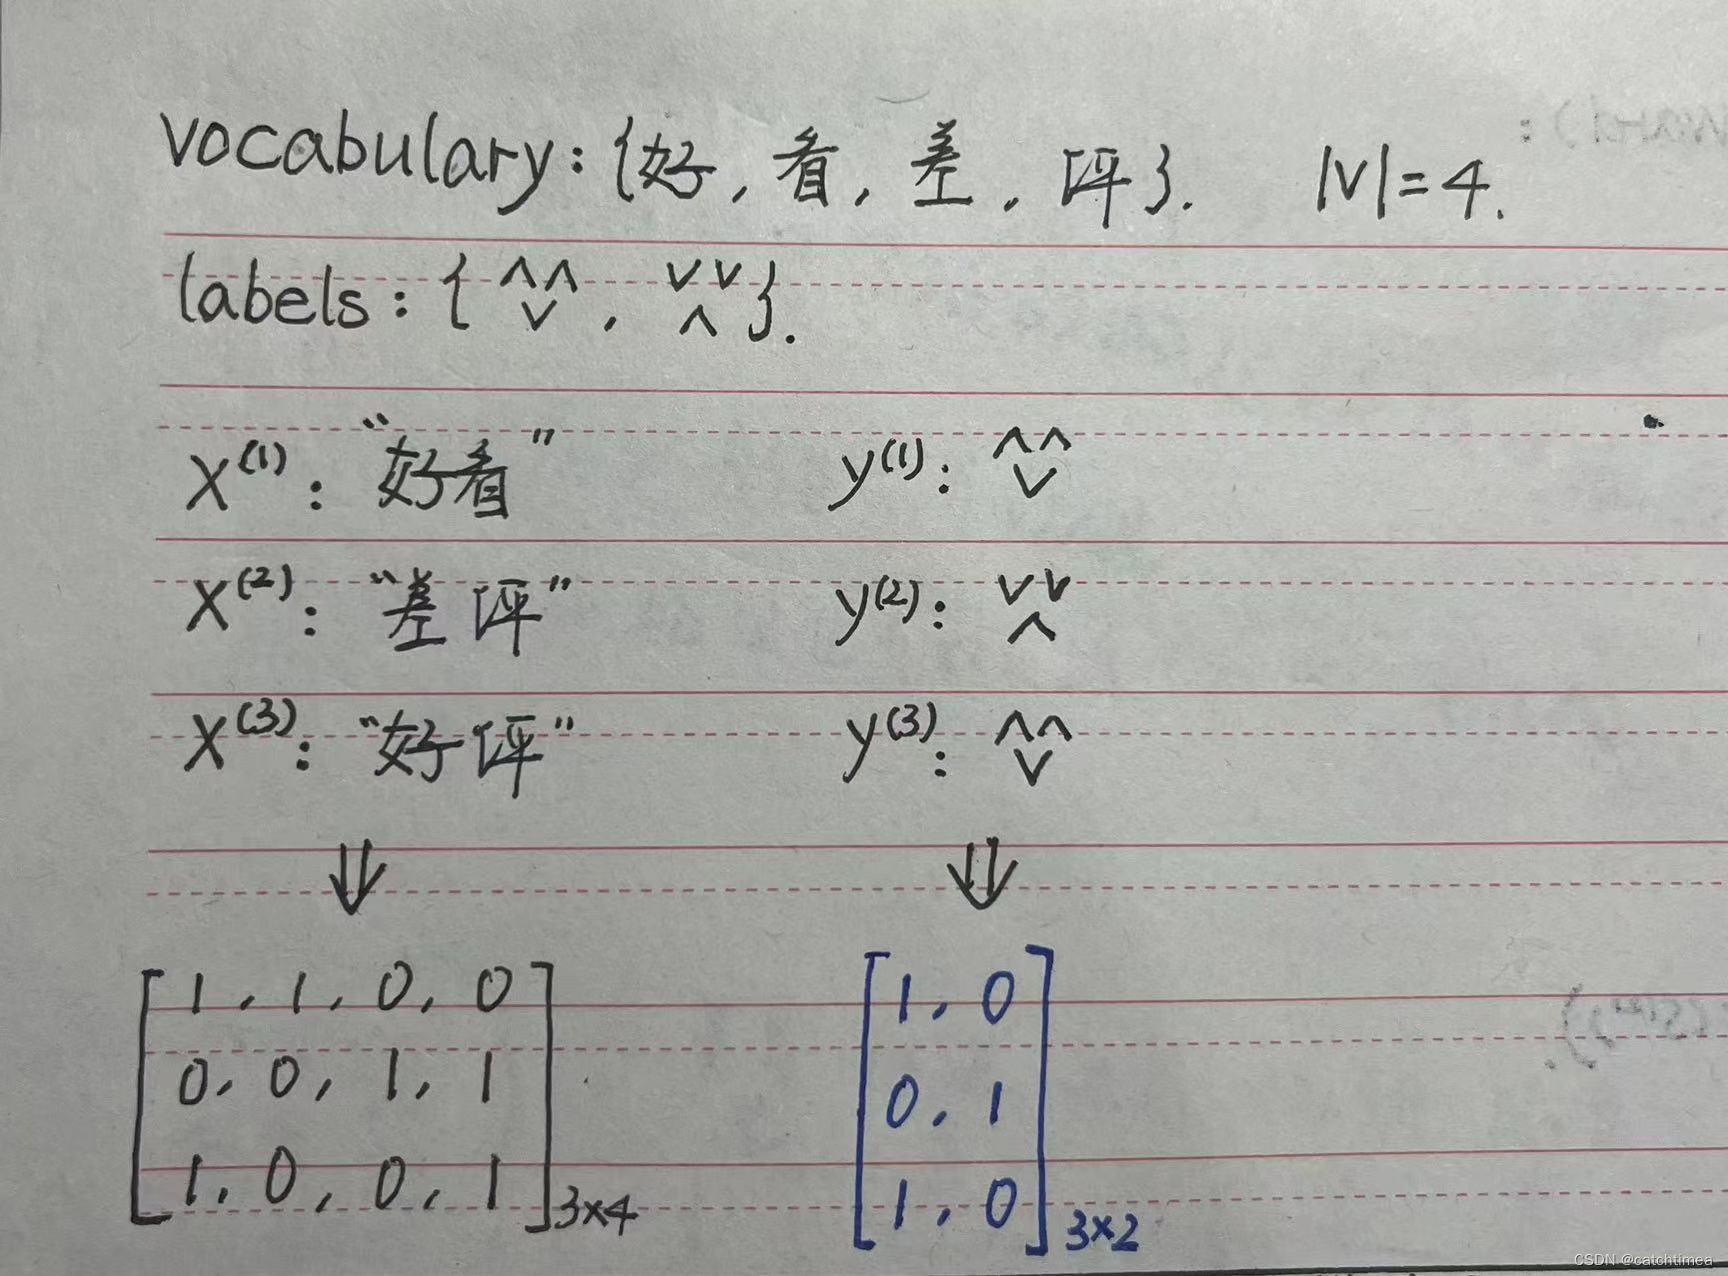 vocabulary: {好, 看, 差, 评}. |V|=4.
labels: {^^ v, vv ^}.
X^(1): "好看" y^(1): ^^ v
X^(2): "差评" y^(2): vv ^
X^(3): "好评" y^(3): ^^ v
⇓ ⇓
[1, 1, 0, 0 [1, 0
0, 0, 1, 1 0, 1
1, 0, 0, 1]3×4 1, 0]3×2
CSDN @catchtimea